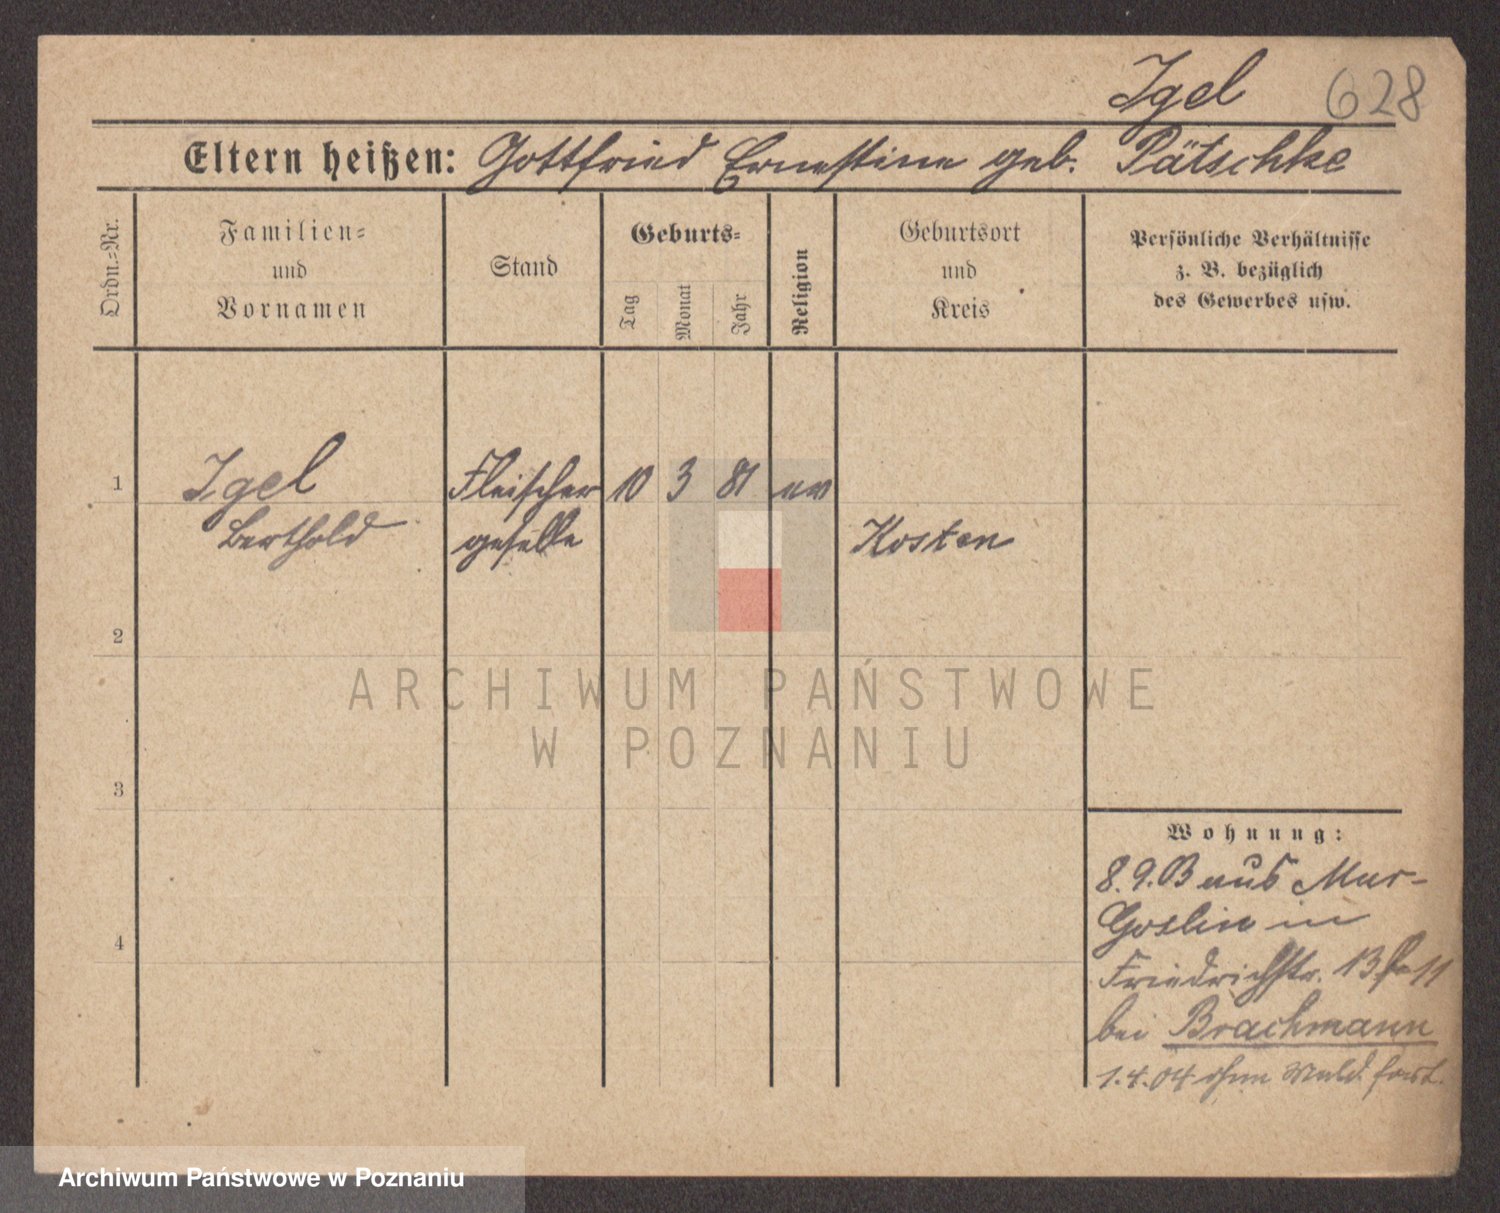 Igel 628
Eltern heißen: Gottfried Ernestine geb. Pätschke
Ordn.=Nr.
Familien=
und
Vornamen
Stand
Geburts=
Tag
Monat
Jahr
Religion
Geburtsort
und
Kreis
Persönliche Verhältnisse
z. B. bezüglich
des Gewerbes usw.
1 Igel Fleischer 10 3 81 ev
Berthold geselle Kosten
2
3
4
ARCHIWUM PAŃSTWOWE
W POZNANIU
Wohnung:
8.9.03 aus Mur-
Goslin in
Friedrichstr. 13
bei Brachmann
1.4.04 ohne Meld. fort.
Archiwum Państwowe w Poznaniu